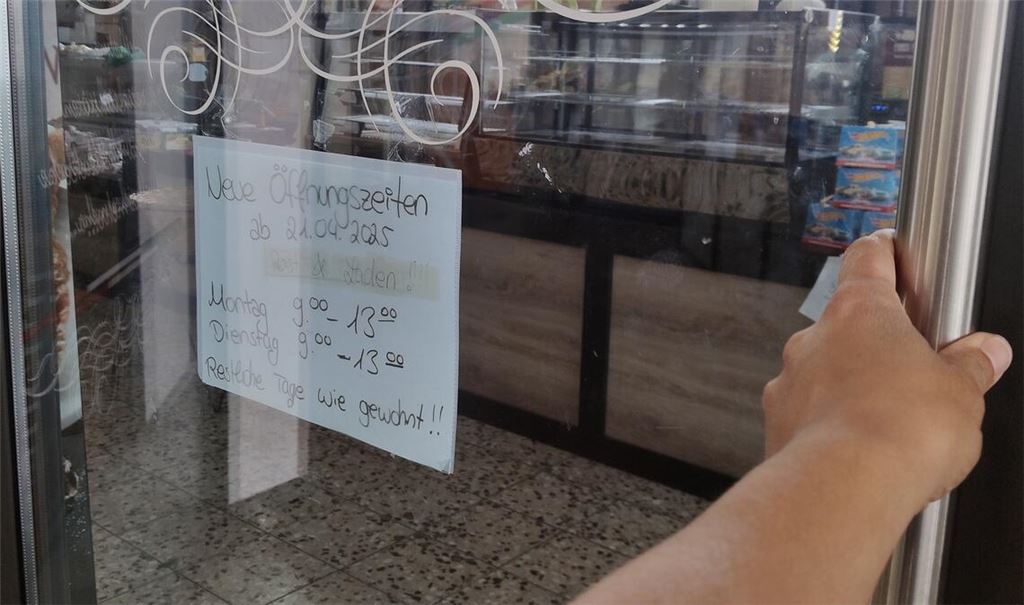 Neue Öffnungszeiten
ab 21.04.2025
Laden!!!
Montag 9:00 - 13 00
Dienstag 9:00 - 13 00
Restliche Tage wie gewohnt!!
HOT WHEELS